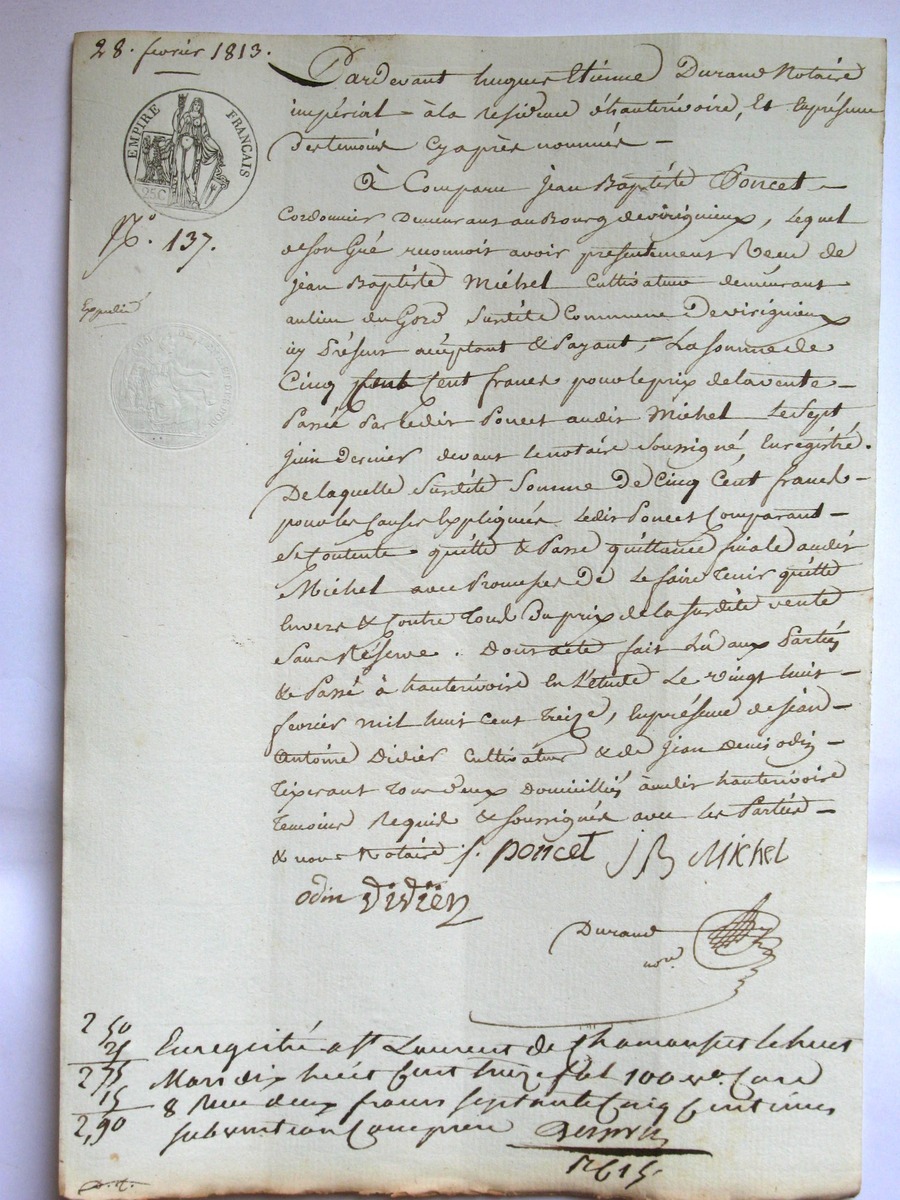 28. fevrier 1813.
EMPIRE FRANÇAIS
25 C
N.º 137.
Expedié
Pardevant hugues Etienne Durand Notaire
impérial à la residence d'hauterivoire, Et Enprésence
Destemoins Cyaprès nommés
A Comparu jean Baptiste Poncet
Cordonnier Demeurant au Bourg devirignieux, Lequel
deson Gré reconnoit avoir présentement Recu de
jean Baptiste Michel Cultivateur demeurant
aulieu du Gord Surdite Commune Devirignieux
icy Présent acceptant & Payant, La somme de
Cinq Cent francs pour le prix delavente
Passée Parledit Poncet audit Michel Le Sept
juin Dernier devant lenotaire Soussigné, Enregistré.
Delaquelle Surdite Somme De Cinq Cent francs
pour les Causes Expliquées Ledit Poncet Comparant
Se Contente quitte & Passe quittance finale audit
Michel avec Promesse De Le faire Tenir quitte
Envers & Contre Tous Duprix de la Surdite vente
Sans Réserve. Dont acte fait Lû aux Parties
& Passé à hauterivoire En L'étude Le vingt huit
fevrier mil huit Cent Treize, Enprésence de jean
Antoine Didier Cultivateur & de jean Denis odin
Tixerant Tous Deux Domiciliés audit hauterivoire
Temoins Requis & Soussignés avec les Parties
& nous Notaire J. poncet J B Michel
odin didier
Durand
nore
2 50
25
2 75
15
2,90
Enregistré a St Laurent de Chamousset le huit
Mars dix huit Cent treize fol 100 Vo. Case
8 Recu deux francs Septante Cinq Centimes
subvention Comprise